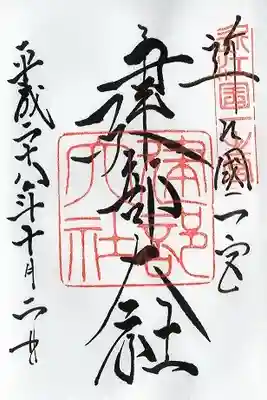 近江國一宮
建部大社
建部大社
平成二十八年十月二日